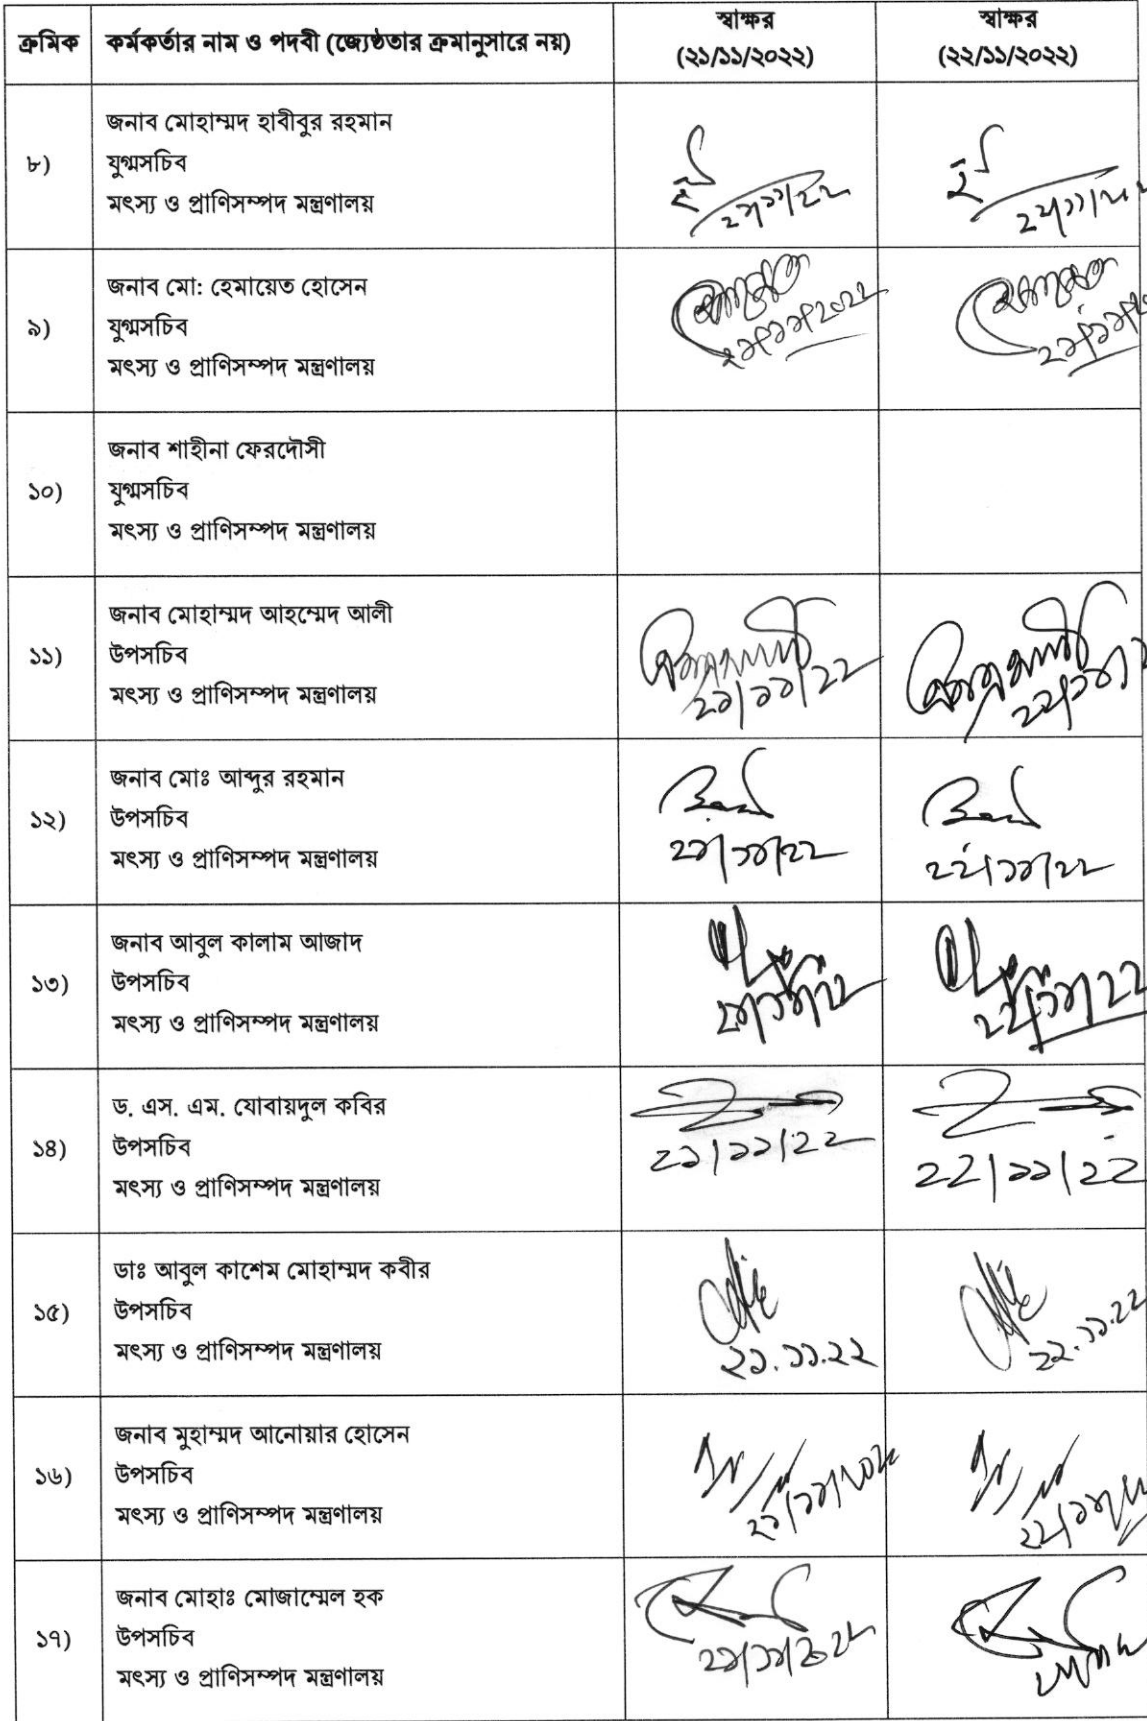 ক্রমিক কর্মকর্তার নাম ও পদবী (জ্যেষ্ঠতার ক্রমানুসারে নয়) স্বাক্ষর (২১/১১/২০২২) স্বাক্ষর (২২/১১/২০২২)
জনাব মোহাম্মদ হাবীবুর রহমান
৮) যুগ্মসচিব
মৎস্য ও প্রাণিসম্পদ মন্ত্রণালয়
২১/১১/২২
জনাব মো: হেমায়েত হোসেন
৯) যুগ্মসচিব
মৎস্য ও প্রাণিসম্পদ মন্ত্রণালয়
২১/১১/২০২২
জনাব শাহীনা ফেরদৌসী
১০) যুগ্মসচিব
মৎস্য ও প্রাণিসম্পদ মন্ত্রণালয়
জনাব মোহাম্মদ আহম্মেদ আলী
১১) উপসচিব
মৎস্য ও প্রাণিসম্পদ মন্ত্রণালয়
২১/১১/২২
জনাব মোঃ আব্দুর রহমান
১২) উপসচিব
মৎস্য ও প্রাণিসম্পদ মন্ত্রণালয়
২১/১১/২২ ২২/১১/২২
জনাব আবুল কালাম আজাদ
১৩) উপসচিব
মৎস্য ও প্রাণিসম্পদ মন্ত্রণালয়
২১/১১/২২ ২২/১১/২২
ড. এস. এম. যোবায়দুল কবির
১৪) উপসচিব
মৎস্য ও প্রাণিসম্পদ মন্ত্রণালয়
২১/১১/২২ ২২/১১/২২
ডাঃ আবুল কাশেম মোহাম্মদ কবীর
১৫) উপসচিব
মৎস্য ও প্রাণিসম্পদ মন্ত্রণালয়
২১.১১.২২ ২২.১১.২২
জনাব মুহাম্মদ আনোয়ার হোসেন
১৬) উপসচিব
মৎস্য ও প্রাণিসম্পদ মন্ত্রণালয়
জনাব মোহাঃ মোজাম্মেল হক
১৭) উপসচিব
মৎস্য ও প্রাণিসম্পদ মন্ত্রণালয়